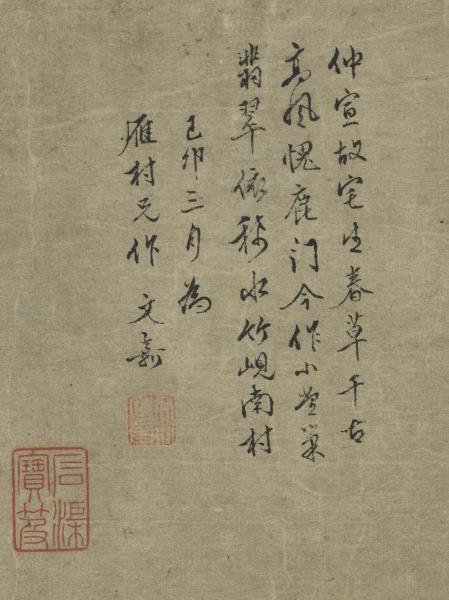 仲宣故宅生春草千古
高風愧鹿門今作小堂巢
翡翠依稀水竹峴南村
己卯三月為
雁村兄作 文嘉
石渠
寶笈